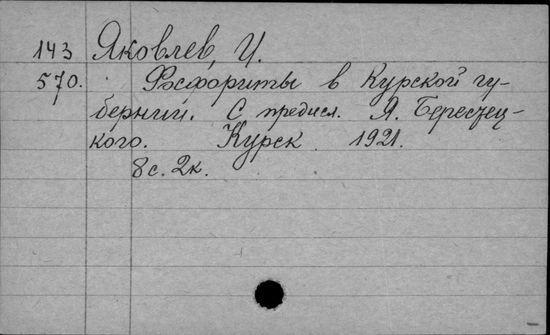 143 Яковлев, И.
570. Фосфориты в Курской гу-
бернии. С предисл. Я. Березец-
кого. Курск. 1921.
8с. 2к.